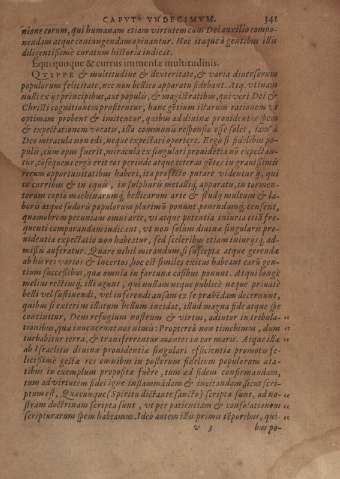 CAPVT VNDECIMVM. 341
nione eorum, qui humanam etiam virtutem cum Dei auxilio componendam
atque coniungendam opinantur. Hoc ita pacta gentibus illis
diligentissime curatum historia indicat.
Equi quoque & currus immensæ multitudinis.
QVIPPE & multitudine & dexteritate, & varia diuersorum
populorum felicitate, nec non bellico apparatu fidebant. Atqui vtinam
nulli ex ijs principibus, aut populis, & magistratibus, qui veri Dei &
Christi cognitionem profitentur, hanc gentium istarum rationem vt
optimam probent & imitentur, quibus ad diuinæ prouidentiæ spem
& expectationem vocatis, illa communia responsa
Deo miracula non edi, neque expectari oportere. Ergo si publicus populis,
cum opus fuerit, miracula ex singulari prouidentia
rerum opportunitatibus haberi, ita profecto putare videntur ij, qui
in curribus & in equis, in sulphuris metallis, apparatu, in tormentorum
copia machinarum, bellicarum arte & studio militum & labores
atque sudore populorum plurimum ponunt ponendumque censent,
quamobrem pecuniam omni arte, vi atque potentia iniuria etiam frequenti
comparandam indicent, vt non solum diuinæ singularis prouidentiæ
expectatio non habeatur, sed sceleribus etiam iniurijsque admissis
auferatur. Quare nihil mirandum si suscepta atque gerenda
ab his res varios & incertos, hoc est similes exitus habeant earum gentium
successibus, quæ omnia in fortunæ casibus ponunt. Atqui longe
melius rectiusque, illi agunt, qui nullum neque publice neque priuatim
belli vel sustinendi, vel inferendi ansam ex se præbendam decernunt,
quibus si exterius illatum bellum incidat, illud magna fide atque spe
concinunt, Deus refugium nostrum & virtus, adiutor in tribulationibus,
quæ inuenerunt nos nimis: Propterea non timebimus, dum
turbabitur terra, & transferentur montes in cor maris. Atque illa
ab Israelitis diuina prouidentia singulari efficiente promota felicissime
gesta res omnibus in posterum fidelium populorum ætatibus
in exemplum proposita fuere, tum ad fidem confirmandam,
tum ad virtutem fidei igne inflammandam & excitandam sicut scriptum
est, Quæcunque (Spiritu dictante sancto) scripta sunt, ad nostram
doctrinam scripta sunt, vt per patientiam & consolationem
scripturarum spem habeamus. Ideo autem illis primis temporibus, qui-
v 3 bus po-